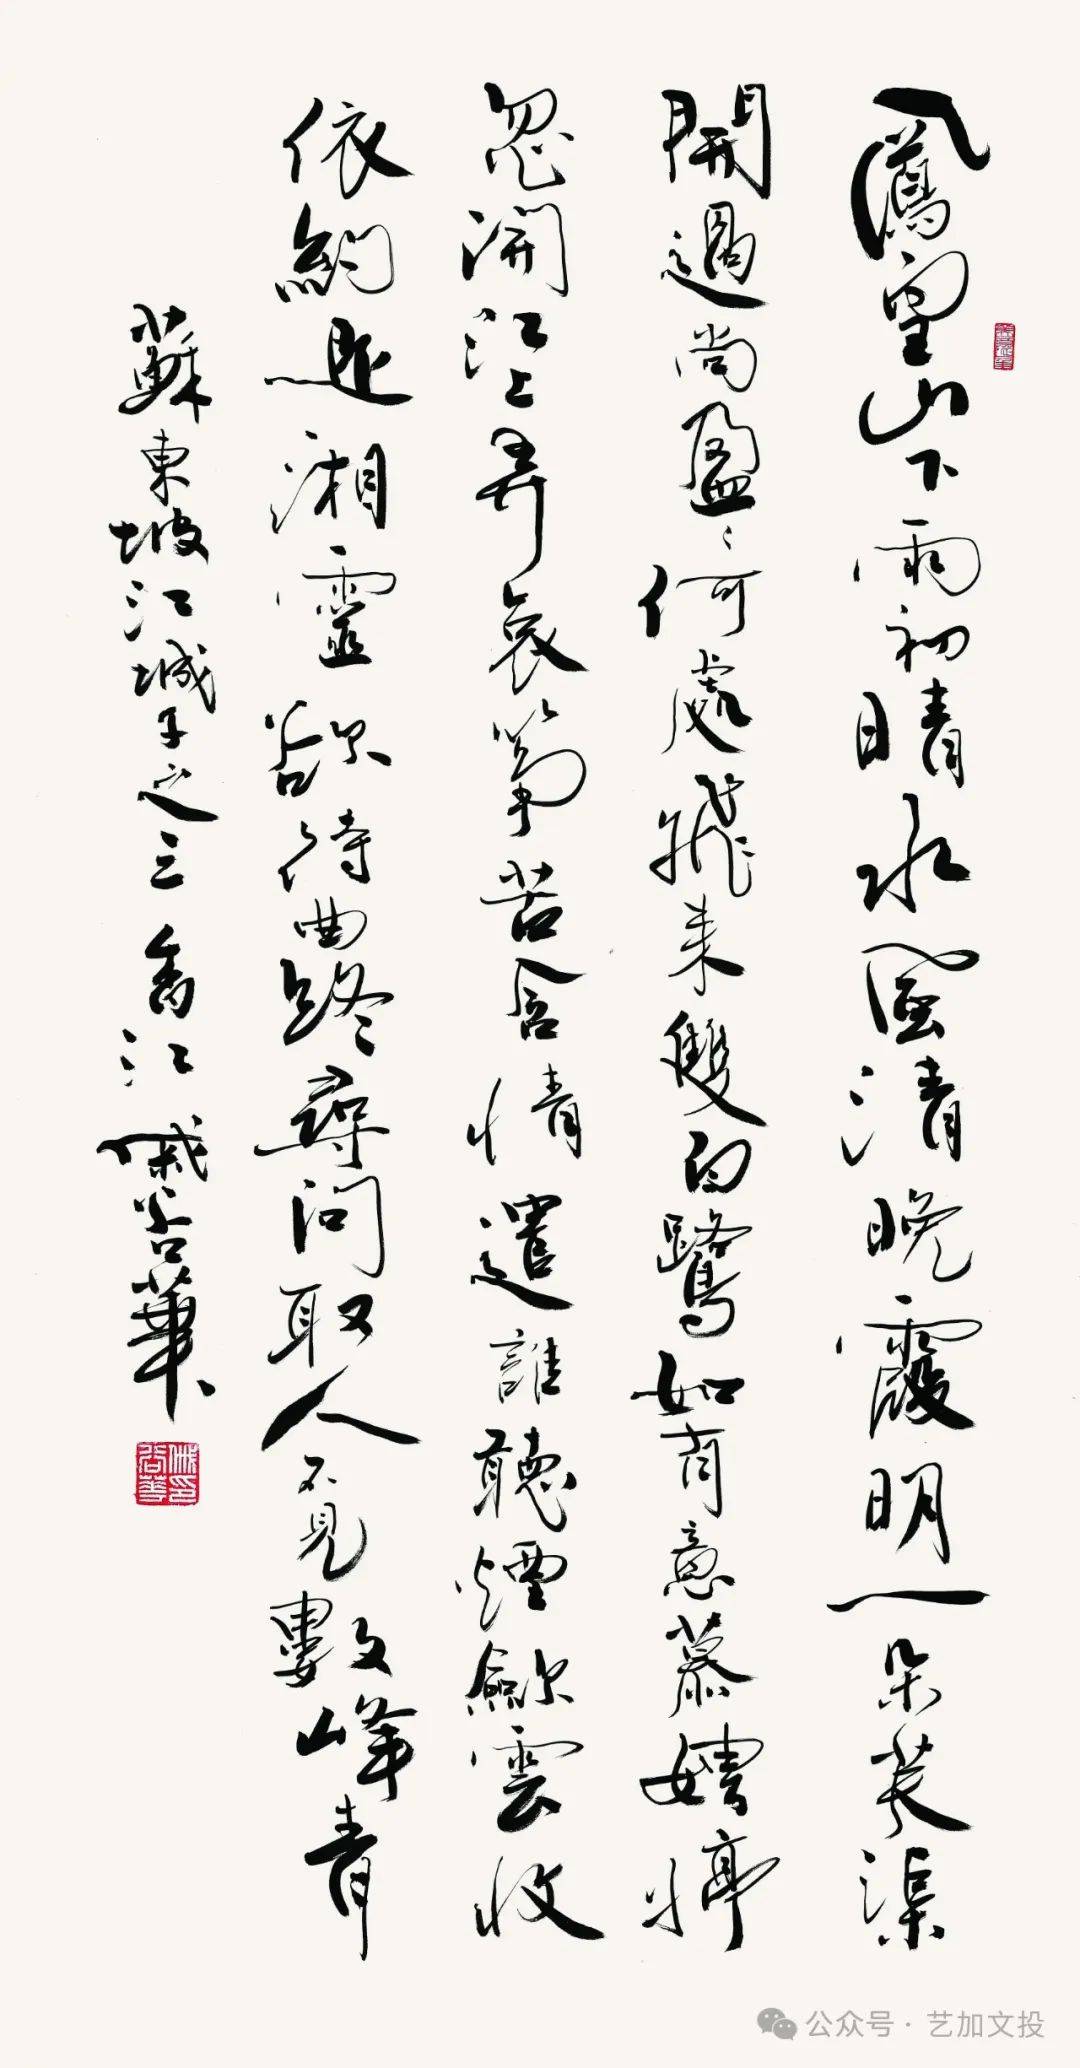 鳳凰山下雨初晴水風清晚霞明一朵芙渠
開過尚盈〻何處飛来雙白鷺如有意慕娉婷
忽聞江上弄哀筝苦含情遣誰聽煙歛雲收
依約是湘靈欲待曲終尋問取人不見數峰青
蘇東坡江城子之三 香江 戚谷華
公众号·艺加文投